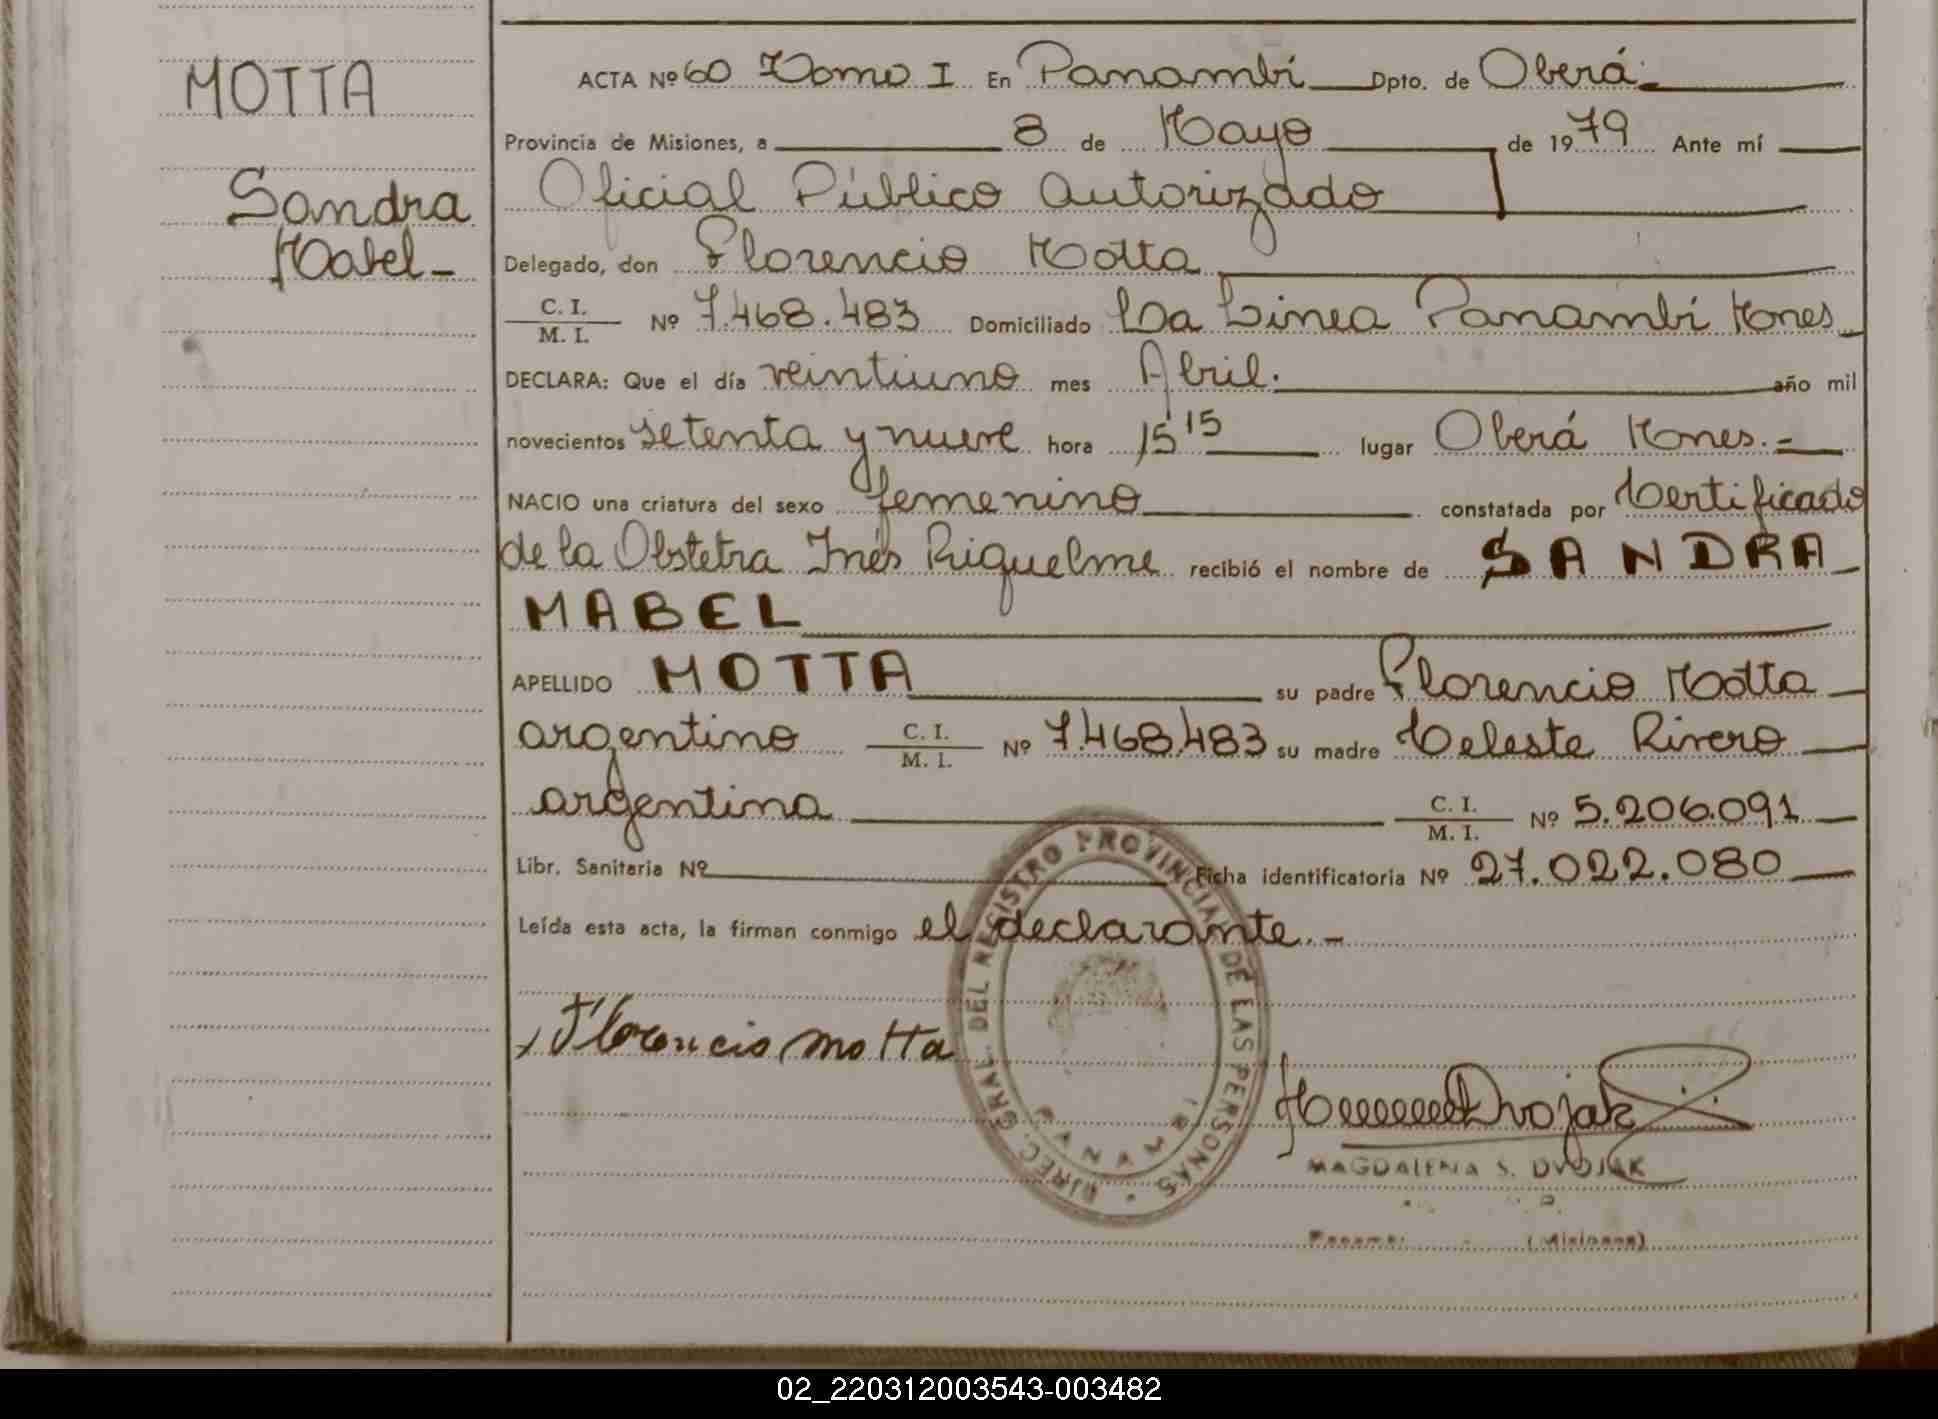 MOTTA
Sandra
Mabel -
ACTA Nº 60 Tomo I En Panambí Dpto. de Oberá.
Provincia de Misiones, a 8 de Mayo de 1979 Ante mí
Oficial Público Autorizado
Delegado, don Florencio Motta
C. I. / M. I. Nº 7.468.483 Domiciliado La Linea Panambí Mones
DECLARA: Que el día veintiuno mes Abril. año mil
novecientos setenta y nueve hora 15 15 lugar Oberá Mones.-
NACIO una criatura del sexo femenino constatada por Certificado
de la Obstetra Inés Riquelme recibió el nombre de SANDRA
MABEL
APELLIDO MOTTA su padre Florencio Motta
argentino C. I. / M. I. Nº 7.468.483 su madre Celeste Rivero
argentina C. I. / M. I. Nº 5.206.091
Libr. Sanitaria Nº Ficha identificatoria Nº 27.022.080
Leída esta acta, la firman conmigo el declarante. -
Florencio Motta
DIREC. GRAL. DEL REGISTRO PROVINCIAL DE LAS PERSONAS
PANAMBI
Dvojak
MAGDALENA S. DVOJAK
(Misiones)
02_220312003543-003482